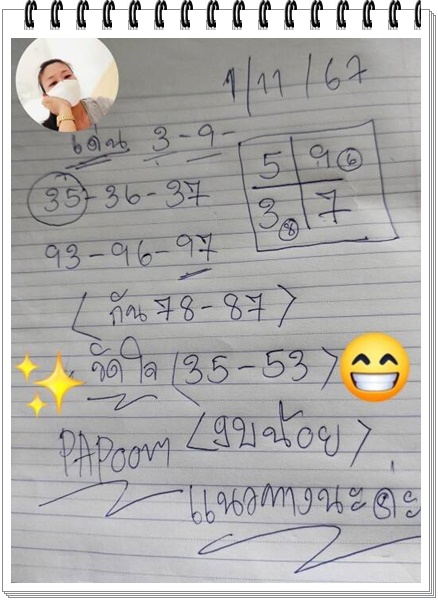 1/11/67
เด่น 3-9-
5 9 6
3 8 7
35-36-37
93-96-97
(กัน 78-87)
จัดใจ (35-53)
PAPOOM <งบน้อย>
แนวทางนะคะ